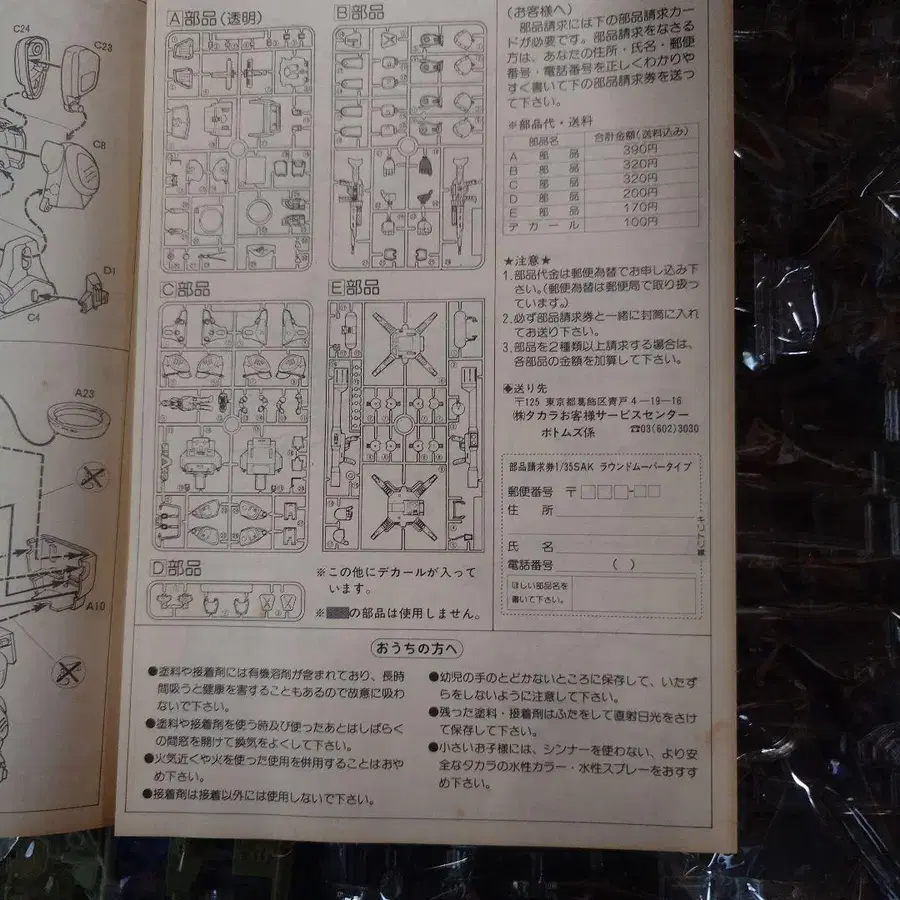 C24
C23
C8
D1
C4
A23
A10
A部品(透明)
B部品
C部品
E部品
D部品
※この他にデカールが入って
います。
※ の部品は使用しません。
(お客様へ)
部品請求には下の部品請求カー
ドが必要です。部品請求をなさる
方は、あなたの住所・氏名・郵便
番号・電話番号を正しくわかりや
すく書いて下の部品請求券を送っ
て下さい。
※部品代・送料
部品名 合計金額(送料込み)
A 部 品 390円
B 部 品 320円
C 部 品 320円
D 部 品 200円
E 部 品 170円
デカール 100円
★注意★
1.部品代金は郵便為替でお申し込み下
さい。(郵便為替は郵便局で取り扱っ
ています。)
2.必ず部品請求券と一緒に封筒に入れ
てお送り下さい。
3.部品を2種類以上請求する場合は、
各部品の金額を加算して下さい。
◆送り先
〒125 東京都葛飾区青戸4-19-16
㈱タカラお客様サービスセンター
ボトムズ係 ☎03(602)3030
部品請求券1/35SAK ラウンドムーバータイプ
郵便番号 〒□□□-□□
住 所
氏 名
電話番号 ( )
ほしい部品名を
書いて下さい。
キリトリ線
おうちの方へ
●塗料や接着剤には有機溶剤が含まれており、長時
間吸うと健康を害することもあるので故意に吸わ
ないで下さい。
●塗料や接着剤を使う時及び使ったあとはしばらく
の間窓を開けて換気をよくして下さい。
●火気近くや火を使った使用を併用することはおや
め下さい。
●接着剤は接着以外には使用しないで下さい。
●幼児の手のとどかないところに保存して、いたず
らをしないように注意して下さい。
●残った塗料・接着剤はふたをして直射日光をさけ
て保存して下さい。
●小さいお子様には、シンナーを使わない、より安
全なタカラの水性カラー・水性スプレーをおすす
め下さい。